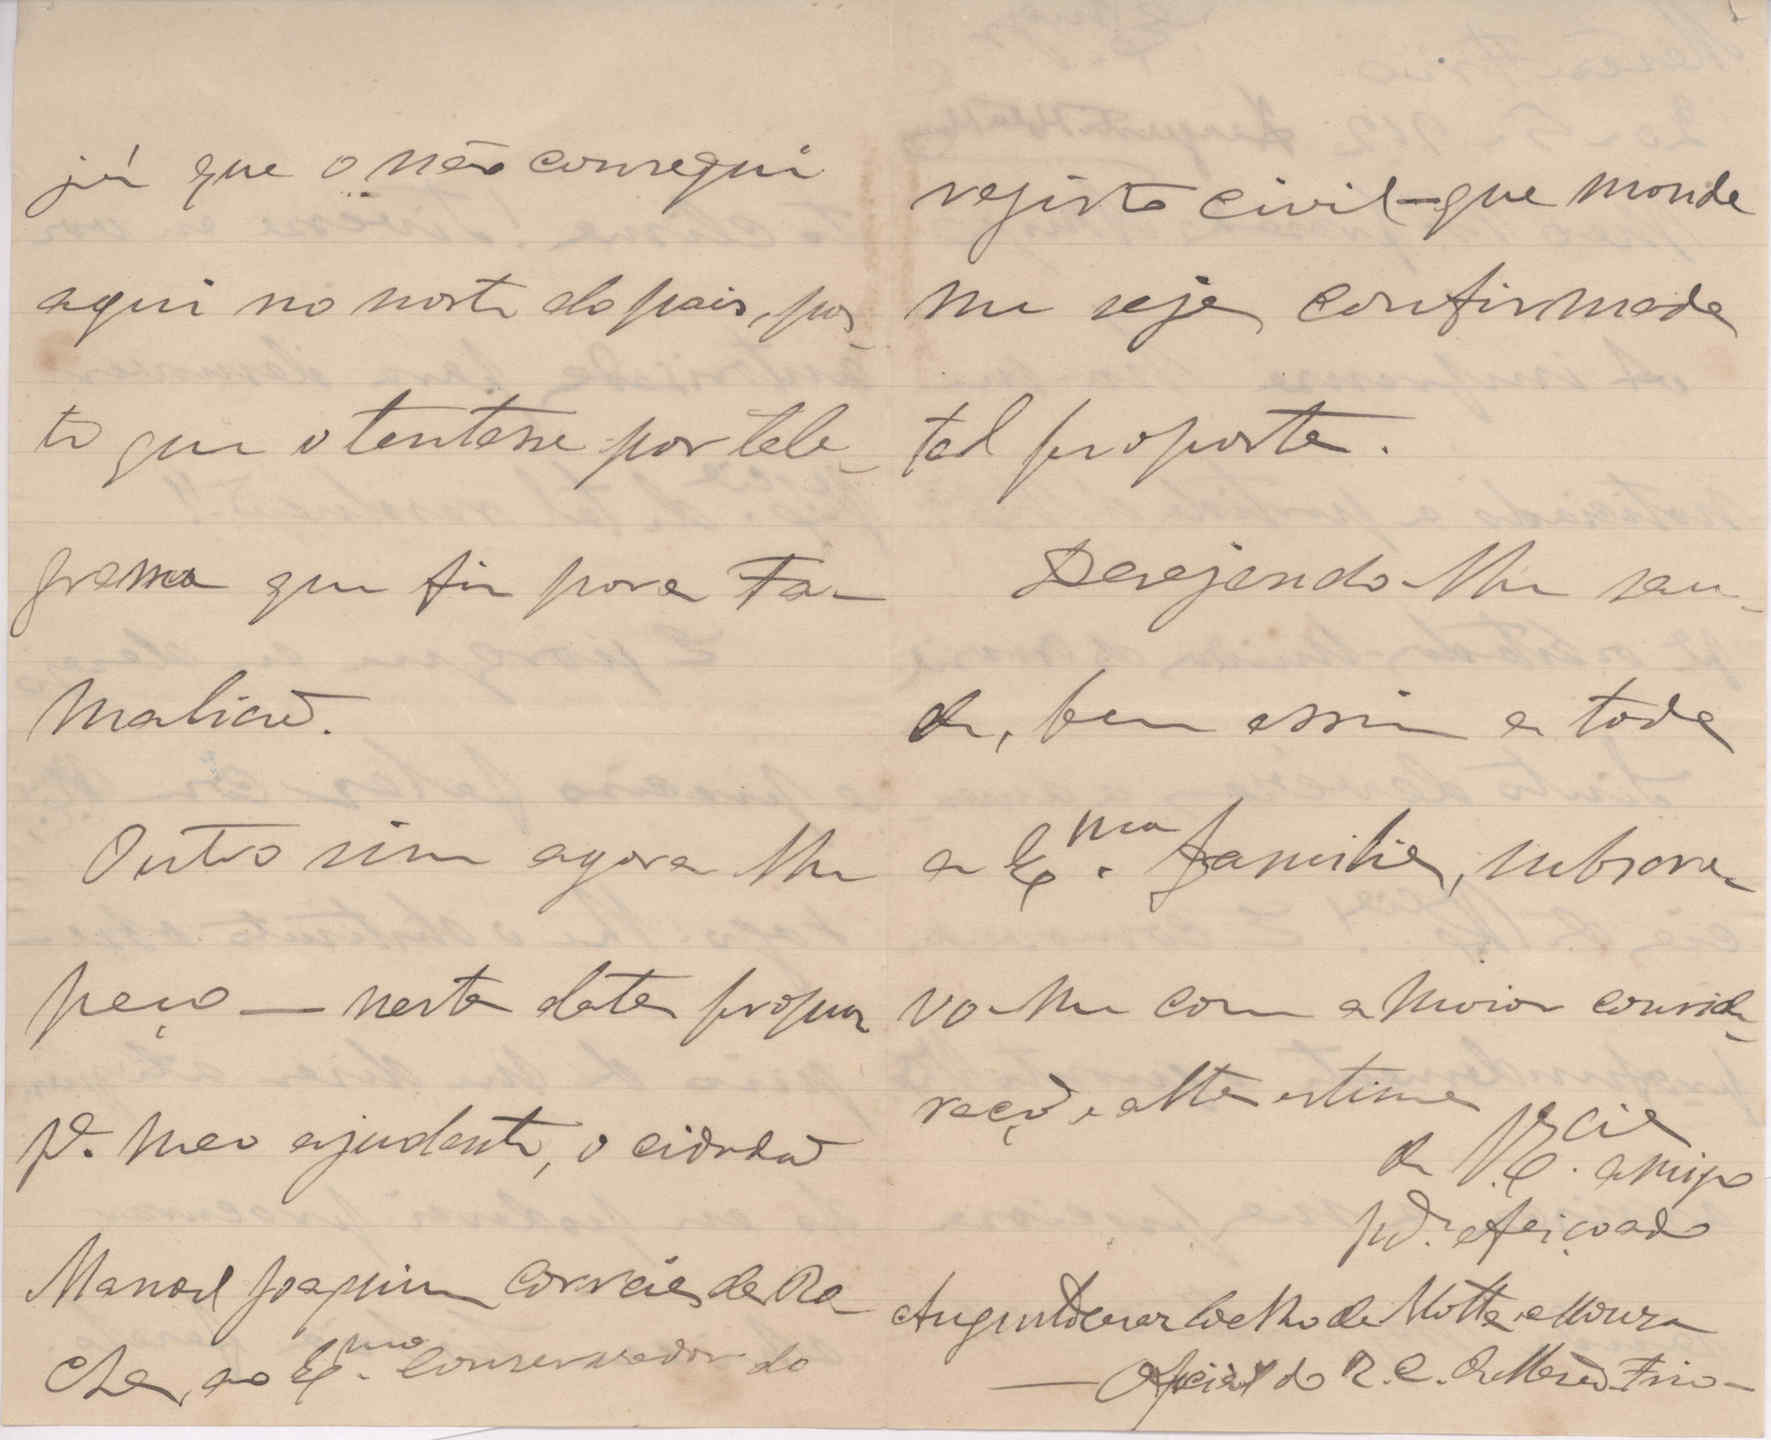 já que o não consegui
aqui no norte do pais, pos-
to que o tentasse por tele-
grama que fiz para Fa-
malicão.
Outro sim agora lhe
peço — nesta data propuz
pª. meu ajudante, o cidadão
Manoel Joaquim Correia da Ro-
cha, ao Exmo. Conservador do
registo civil — que mande
me seja confirmada
tal proposta.
Desejando-lhe sau-
de, bem assim a toda
a Exma. familia, subscre-
vo-me com a maior conside-
ração e alta estima
de V. Excia. amigo
afeiçoado
Augusto Cesar Coelho da Motta e Moura
— Oficial do R. C. de Mesão-Frio —